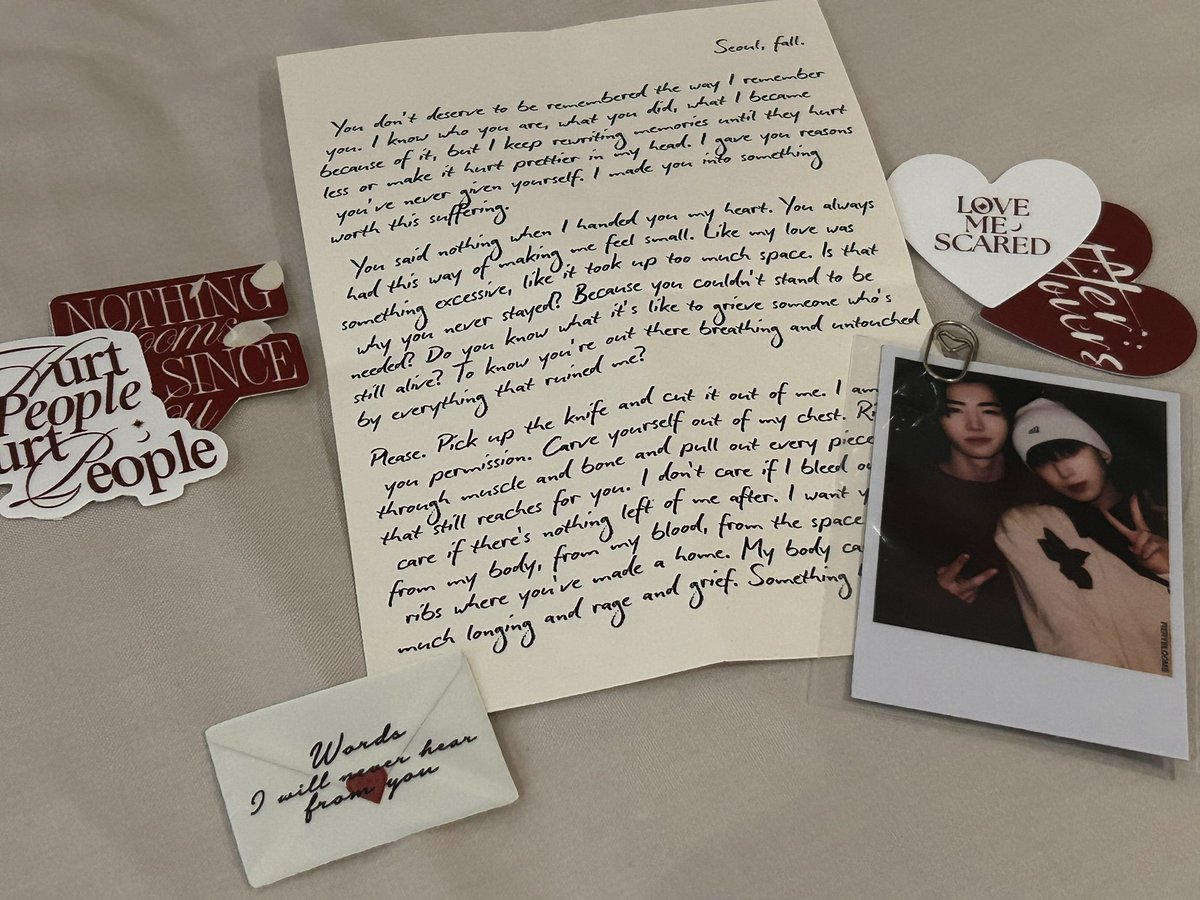 Seoul, fall.
You don't deserve to be remembered the way I remember
you. I know who you are, what you did, what I became
because of it, but I keep rewriting memories until they hurt
less or make it hurt prettier in my head. I gave you reasons
you've never given yourself. I made you into something
worth this suffering.
You said nothing when I handed you my heart. You always
had this way of making me feel small. Like my love was
something excessive, like it took up too much space. Is that
why you never stayed? Because you couldn't stand to be
needed? Do you know what it's like to grieve someone who's
still alive? To know you're out there breathing and untouched
by everything that ruined me?
Please. Pick up the knife and cut it out of me. I am
you permission. Carve yourself out of my chest.
through muscle and bone and pull out every piece
that still reaches for you. I don't care if I bleed
care if there's nothing left of me after. I want
from my body, from my blood, from the space
ribs where you've made a home. My body
much longing and rage and grief. Something
NOTHING
SINCE
Hurt
People
urt
People
LOVE
ME
SCARED
Yours
Words
I will never hear
from you